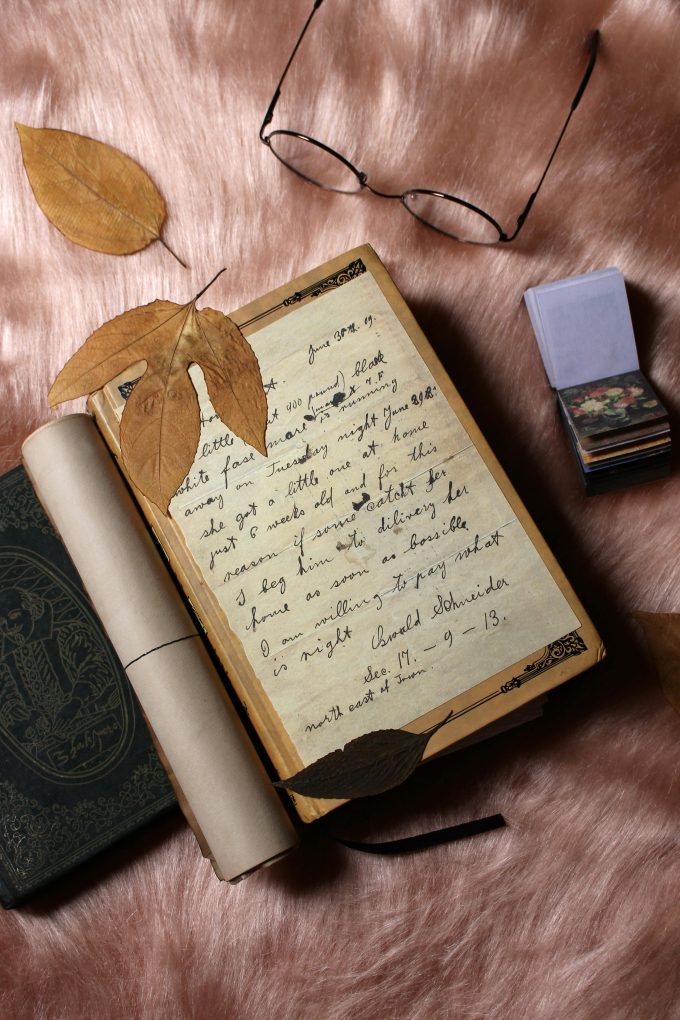 June 30th. 19.
little 900 pound) black
white fase mare running
away on Tuesday night June 29th.
she got a little one at home
just 6 weeks old and for this
reason if some catcht her
I beg him to dilivery her
home as soon as bossible
I am willing to pay what
is night Oswald Schneider
Sec. 17. – 9 – 13.
north east of Town.